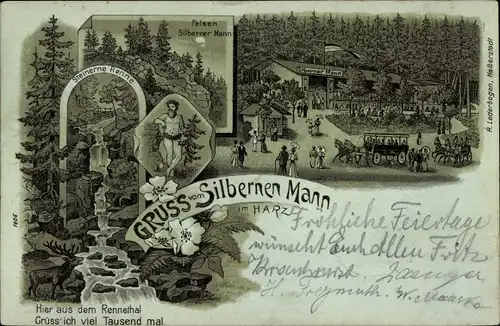 Felsen
Silberner Mann
Steinerne Renne
Silberner Mann
R. Lederbogen, Halberstadt
Gruss vom Silbernen Mann
im HARZ
Fröhliche Feiertage
wünscht Euch Allen Fritz
H. Freymuth. W.
1656
Hier aus dem Rennethal
Grüss' ich viel Tausend mal.